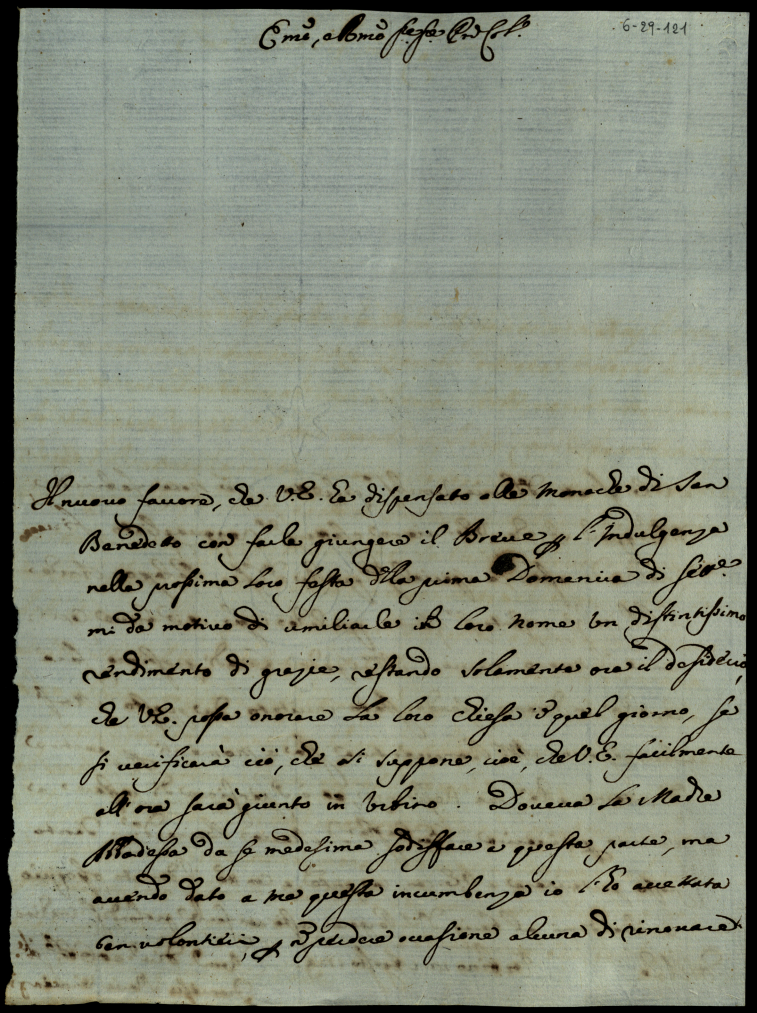 Emo, e Rmo Sig.e Sig.e Pron Col.o
6-29-121
Il nuovo favore, che V.E. ha dispensato alle Monache di San
Benedetto con farle giungere il Breve p l'Indulgenza
nella prossima loro festa della prima Domenica di Sett.e
mi dà motivo di umiliarle in loro nome un distintissimo
rendimento di grazie, restando solamente ora il desiderio,
che V.E. possa onorare la loro chiesa in quel giorno, se
si verificarà ciò, che si suppone, cioè, che V.E. facilmente
all'ora sarà giunto in Urbino. Doveva la Madre
Abbadessa da se medesima sodisfare à questa parte, ma
avendo dato a me questa incumbenza io l'ho accettata
ben volontieri, p nõ perdere occasione alcuna di rinovare